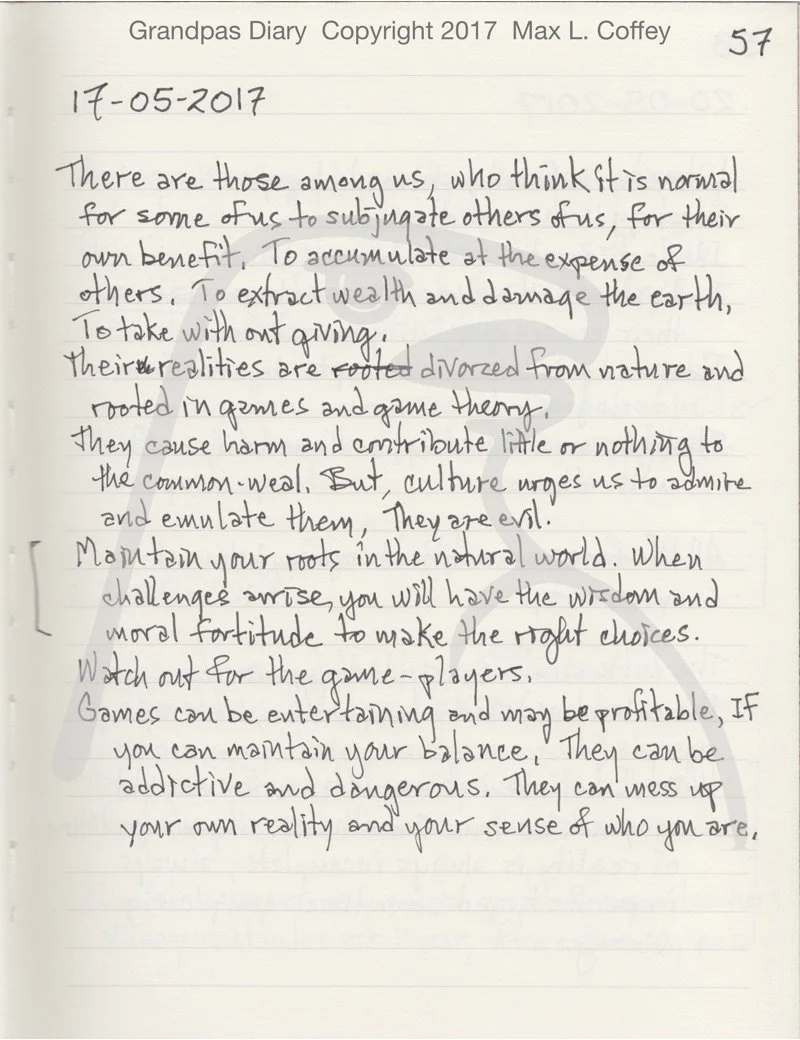 Grandpas Diary Copyright 2017 Max L. Coffey
57
17-05-2017
There are those among us, who think it is normal
for some of us to subjugate others of us, for their
own benefit. To accumulate at the expense of
others. To extract wealth and damage the earth,
To take with out giving.
Their realities are rooted divorzed from nature and
rooted in games and game theory.
They cause harm and contribute little or nothing to
the common-weal. But, culture urges us to admire
and emulate them, They are evil.
Maintain your roots in the natural world. When
challenges arrise, you will have the wisdom and
moral fortitude to make the right choices.
Watch out for the game-players.
Games can be entertaining and may be profitable, If
you can maintain your balance. They can be
addictive and dangerous. They can mess up
your own reality and your sense of who you are.